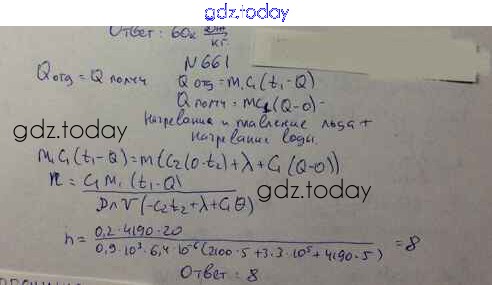 gdz.today
Ответ: 60к Дж/кг.
N661
Qотд = Qполуч Qотд = M₁C₁(t₁-Q)
Qполуч = MC₁(Q-0) -
нагревание и плавление льда +
нагревание воды.
gdz.today
M₁C₁(t₁-Q) = m(C₂(0-t₂)+λ+C₁(Q-0))
n = C₁M₁(t₁-Q) / DnV(-C₂t₂+λ+C₁θ)
gdz.today
n = 0,2·4190·20 / 0,9·10³·6,4·10⁻⁶(2100·5+3.3·10⁵+4190·5) = 8
Ответ: 8
gdz.today